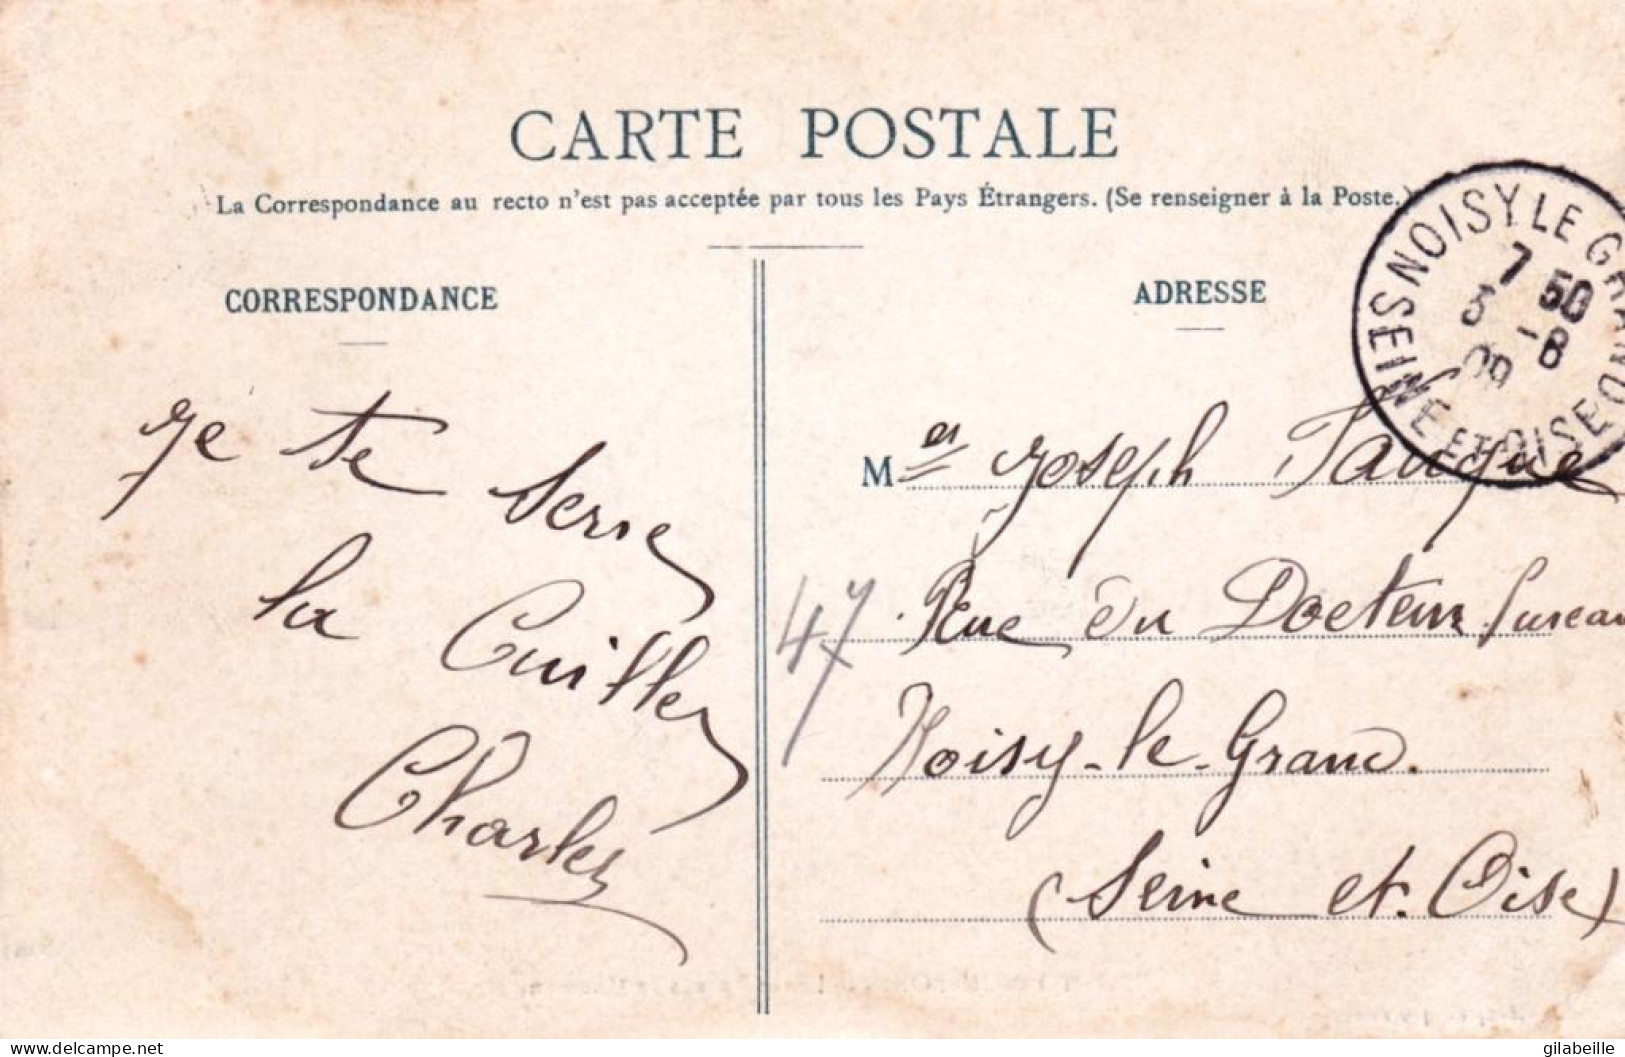 CARTE POSTALE
La Correspondance au recto n'est pas acceptée par tous les Pays Étrangers. (Se renseigner à la Poste.)
CORRESPONDANCE
ADRESSE
NOISY LE GRAND
SEINE ET OISE
7 50
-8
09
Je te serre
la Cuiller
Charles
M er Joseph
47
Rue du Docteur Sureau
Noisy-le-Grand.
(Seine et. Oise)
www.delcampe.net
gilabeille